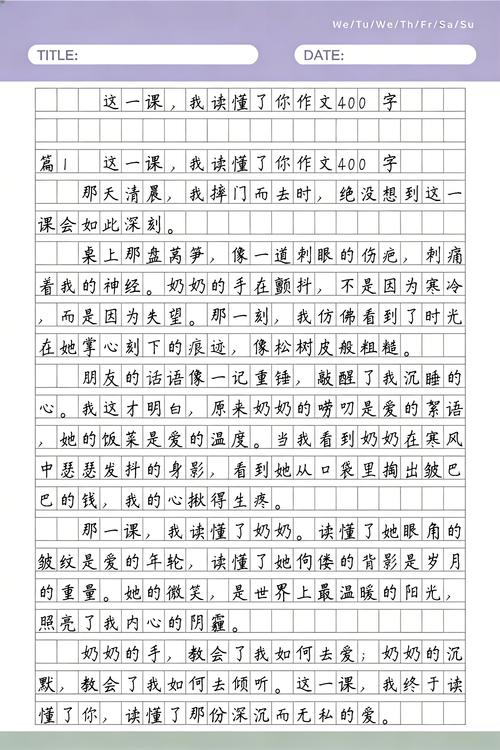 We/Tu/We/Th/Fr/Sa/Su
TITLE: DATE:
这一课，我读懂了你作文400 字
篇1 这一课，我读懂了你作文400 字
那天清晨，我摔门而去时，绝没想到这一
课会如此深刻。
桌上那盘莴笋，像一道刺眼的伤疤，刺痛
着我的神经。奶奶的手在颤抖，不是因为寒冷
，而是因为失望。那一刻，我仿佛看到了时光
在她掌心刻下的痕迹，像松树皮般粗糙。
朋友的话语像一记重锤，敲醒了我沉睡的
心。我这才明白，原来奶奶的唠叨是爱的絮语
，她的饭菜是爱的温度。当我看到奶奶在寒风
中瑟瑟发抖的身影，看到她从口袋里掏出皱巴
巴的钱，我的心揪得生疼。
那一课，我读懂了奶奶。读懂了她眼角的
皱纹是爱的年轮，读懂了她佝偻的背影是岁月
的重量。她的微笑，是世界上最温暖的阳光，
照亮了我内心的阴霾。
奶奶的手，教会了我如何去爱；奶奶的沉
默，教会了我如何去倾听。这一课，我终于读
懂了你，读懂了那份深沉而无私的爱。